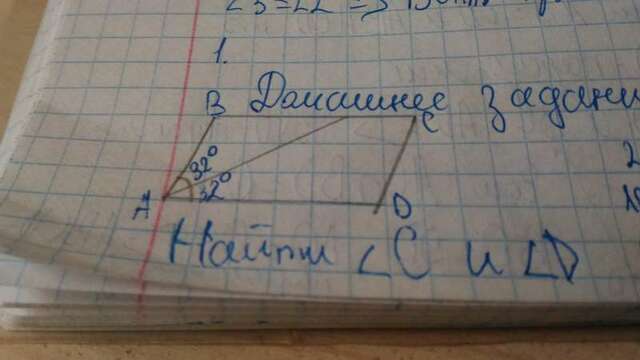 ∠3=∠2 =>
1.
B Домашнее задани
C
32°
32°
A
D
Найти ∠C и ∠D